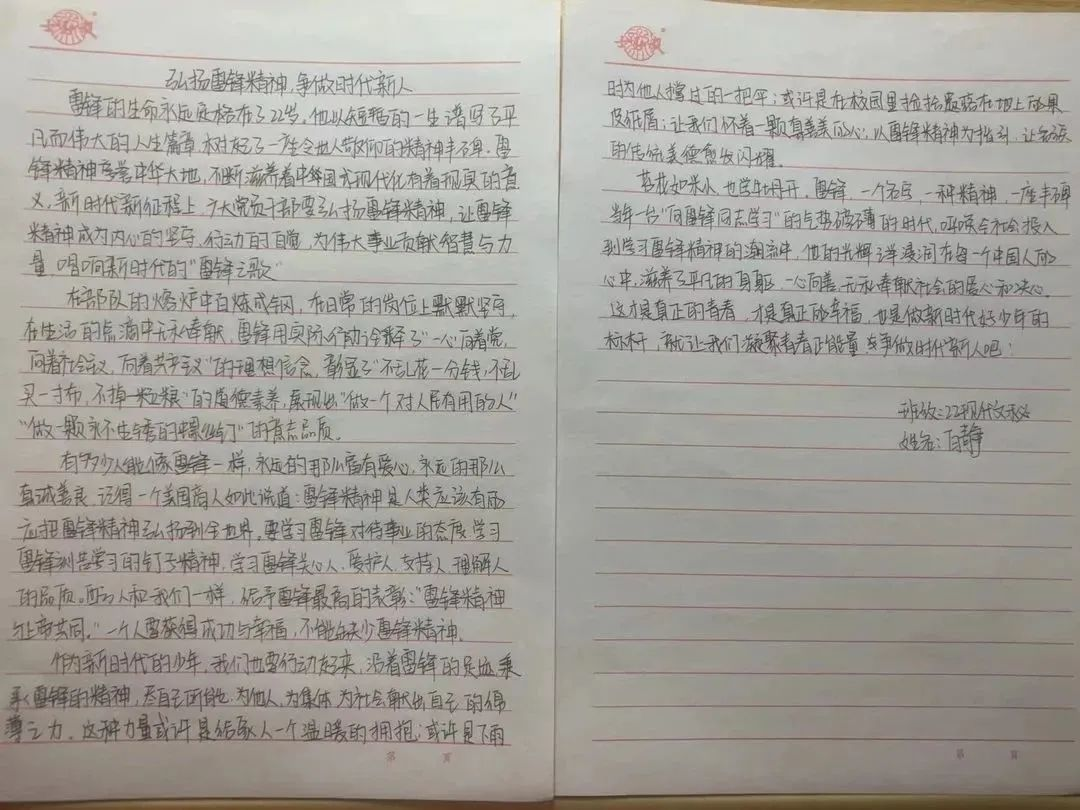 弘扬雷锋精神,争做时代新人
雷锋的生命永远定格在了22岁。他以短暂的一生谱写了平
凡而伟大的人生篇章,树起了一座令世人敬仰的精神丰碑。雷
锋精神享誉中华大地,不断滋养着中华国充现代化有着现真的意
义,新时代新征程上,广大党员干部要弘扬雷锋精神,让雷锋
精神成为内心的坚守,行动的自觉,为伟大事业贡献智慧与力
量,唱响新时代的"雷锋之歌"
在部队的熔炉中百炼成钢,在日常的岗位上默默坚守,
在生活的点滴中无私奉献,雷锋用实际行动诠释了"一心向着党,
向着社会主义,向着共产主义"的理想信念,彰显了"不乱花一分钱,不乱
买一寸布,不掉一粒粮"的道德素养,展现出"做一个对人民有用的人"
"做一颗永不生锈的螺丝钉"的意志品质。
有多少人能像雷锋一样,永远的那么富有爱心,永远的那么
真诚善良,记得一个美国商人如此说道:雷锋精神是人类应该有的
应把雷锋精神弘扬到全世界。要学习雷锋对待事业的态度,学习
雷锋刻苦学习的钉子精神,学习雷锋关心人、爱护人、支持人、理解人
的品质。西方人和我们一样,给予雷锋最高的表彰:"雷锋精神
与上帝共同。"一个人要获得成功与幸福,不能缺少雷锋精神。
作为新时代的少年,我们也要行动起来,沿着雷锋的足迹,秉
承雷锋的精神,尽自己所能,为他人,为集体,为社会献出自己的绵
薄之力。这种力量或许是给家人一个温暖的拥抱;或许是下雨
时为他人撑过的一把伞;或许是在校园里捡拾飘落在地上的果
皮纸屑;让我们怀着一颗真善美的心,以雷锋精神为指引,让民族
的传统美德愈发闪耀。
苔花如米小,也学牡丹开。雷锋,一个名字,一种精神,一座丰碑
当年一台"向雷锋同志学习"的气势磅礴的时代,呼唤全社会投入
到学习雷锋精神的潮流中,他的光辉洋溢浸润在每一个中国人的
心中,滋养了平凡的身躯,一心向善,无私奉献社会的爱心和决心。
这才是真正的青春,才是真正的幸福,也是做新时代好少年的
标杆,就让我们凝聚青春正能量,去争做时代新人吧!
班级:22现代文秘
姓名:白静
第 页
第 页